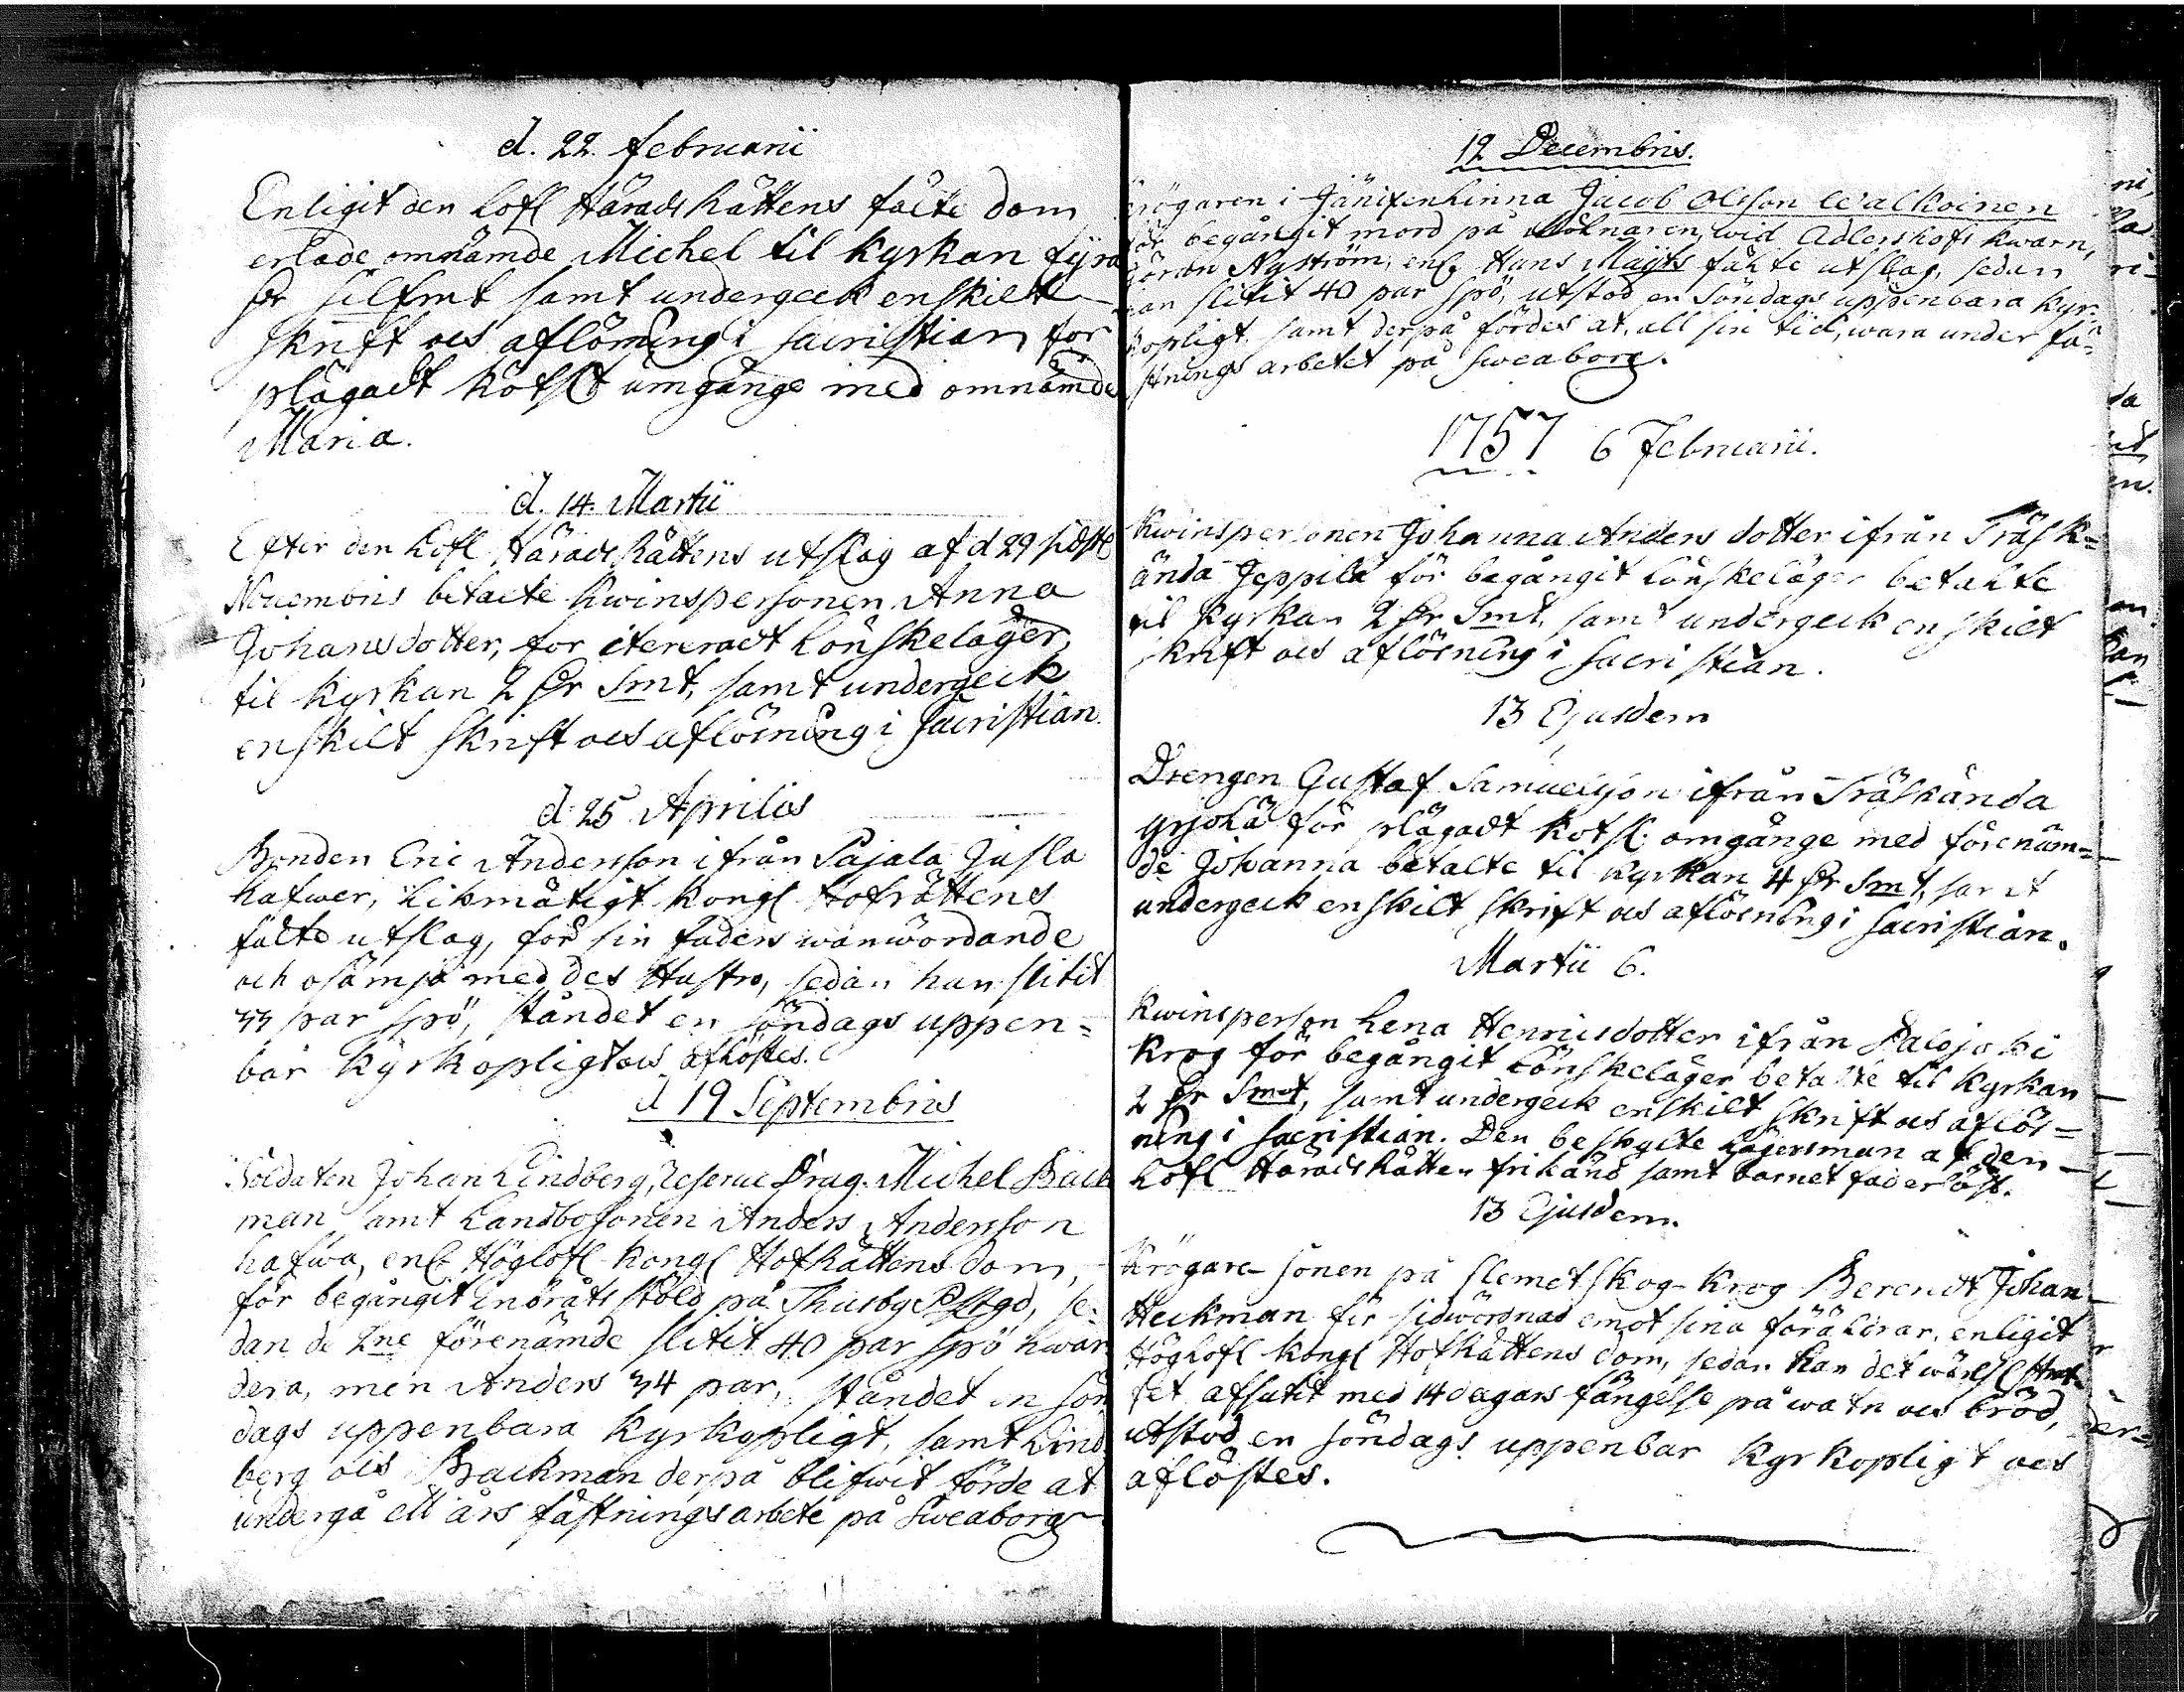 d. 22. februarii
Enligit den Lofl Härads Rättens fälte dom
erlade omnämde Michel til kyrkan fÿra
dr silfmt samt undergeck enskilt
skrift ocs aflösning i sacristian för
plägadt kötsl umgänge med omnämde
Maria.
d. 14. Martii
Efter den Lofl Härads Rättens utslag af d 29 sidstl
Novembris betalte kwinspersonen Anna
Johansdotter, för itereradt Lönskeläger,
til kyrkan 2 dr Smt, samt undergeck
enskilt skrift ocs aflösning i Sacristian.
d. 25 Aprilis
Bonden Eric Andersson ifrån Pajala Jusla
hafwer, Likmätigt kongl Hofrättens
fälte utslag, för sin faders wanwördande
och osämja med des Hustro, sedan han slitit
33 par spö, ståndet en söndags uppen=
bar kyrkopligt ocs aflöstes.
d 19 Septembris
Soldaten Johan Lindberg, Reserve Drag. Michel Back
man samt Landbosonen Anders Andersson
hafwa, enl Höglofl kongl HofRättens dom,
för begångit inbråts stöld på Thusby Pstgd, se=
dan de 2ne förenämde slitit 40 par spö hwar
dera, men Anders 34 par, ståndet en sön
dags uppenbara kyrkopligt, samt Lind
berg ocs Backman derpå blifwit förde at
undergå ett års fästningsarbete på Sweaborg
12 Decembris.
krögaren i Jänixenlinna Jacob Olsson Walkoinen
för begångit mord på Mölnaren wid Adlershofs kwarn,
Göran Nyström, enl Hans Mayts fälte utslag, sedan
han slitit 40 par spö, utstod en Söndags uppenbara kyr=
kopligt samt derpå fördes at, all sin tid, wara under fä=
stnings arbetet på Sweaborg.
1757 6 Februarii.
kwinspersonen Johanna Anders dotter ifrån Träsk=
ända Jeppilä för begångit Lönskeläger betalte
til kyrkan 2 dr Smt, samt undergeck enskilt
skrift ocs aflösning i sacristian.
13 Ejusdem
Drengen Gustaf Samuelsson ifrån Träskända
för plägadt kötsl. omgänge med förenäm=
de Johanna betalte til kyrkan 4 dr Smt, samt
undergeck enskilt skrift ocs aflösning i Sacristian.
Martii 6.
kwinsperson Lena Henricsdotter ifrån Palojoki
krog för begångit Lönskeläger betalte til kyrkan
2 dr Smt, samt undergeck enskilt skrift ocs aflös=
ning i sacristian. Den beskylte Lägersman af den
Lofl Härads Rätten frikänd samt barnet faderlöst.
13 Ejusdem.
krögare sonen på Klemetskog krog Berendt Johan
Heckman för sidwördnad emot sina föräldrar, enligit
Höglofl kongl HofRättens dom, sedan han det
afsutit med 14 dagars fängelse på watn ocs bröd,
utstod en söndags uppenbar kyrkopligt ocs
aflöstes.